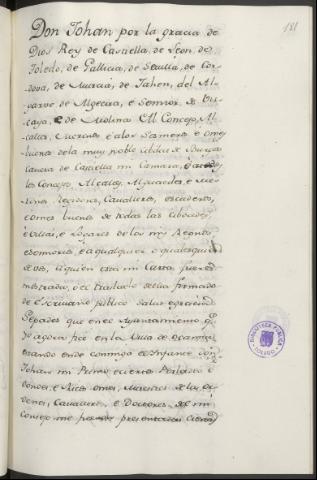 181
Don Johan por la gracia de
Dios Rey de Castiella, de Leon, de
Toledo, de Gallicia, de Sevilla, de Cor-
dova, de Murcia, de Jahen, del Al-
garve de Algecira, e Sennor de Vis-
caya, e de Molina Al Concejo, Al-
calles, Merinos e alos Omes
buenos de la muy noble cibdat de Burgos
caveza de Castiella mi Camara, e a todos
los Concejos, Alcalles, Alguaciles, e Me-
rinos, Regidores, Cavalleros, escuderos,
e omes buenos de todas las cibdades,
e Villas, e Logares de los mis Regnos,
e Sennorios, e a qualquier o qualesquier
de vos, a quien esta mi Carta fuere
mostrada, o el traslado della firmado
de Escrivano público Salut e gracia
Sepades que en el Ayuntamiento que
Yo agora fice en la Villa de Ocanna,
estando ende conmigo el Infante Don
Johan mi Primo, e ciertos Perlados e
Condes, e Ricos omes, Maestres de las Or-
denes, Cavalleros, e Doctores del mi
Consejo me fueron presentadas ciertas
BIBLIOTECA PUBLICA
TOLEDO